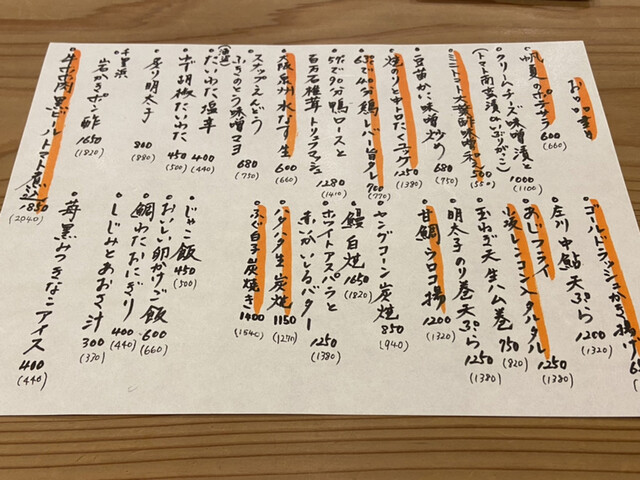 帆夏のポテサラ 600 (660)
クリームチーズ味噌漬と 1000 (1100)
(トマト南蛮漬 いぶりがっこ)
ミニトマト大葉酢味噌和え 500 (550)
豆苗かに味噌炒め 680 (750)
焼のりと中トロたくユッケ 1250 (1380)
63℃で40分鶏レバー旨タレ 700 (770)
59℃で90分鴨ロースと
百万石椎茸トリュフマッシュ 1280 (1410)
大阪泉州水なす生 600 (660)
スナップえんどう
ふきのとう味噌マヨ 680 (750)
たいわた塩辛 400 (440)
ゆず胡椒たいわた 450 (500)
炙り明太子 800 (880)
千里浜
岩がきポン酢 1650 (1820)
牛ホホ肉黒ビールトマト煮込 1850 (2040)
ゴールドラッシュかき揚げ
庄川中鮎天ぷら 1200 (1320)
あじフライ
レンコン入タルタル 1250 (1380)
玉ねぎ天生ハム巻 750 (820)
明太子のり巻天ぷら 1250 (1380)
甘鯛ウロコ揚 1200 (1320)
ヤングコーン炭焼 850 (940)
鰻白焼 1650 (1820)
ホワイトアスパラと
赤いかいしるバター 1250 (1380)
ハタハタ生炭焼 1150 (1270)
ふぐ白子炭焼き 1400 (1540)
じゃこ飯 450 (500)
おいしい卵かけご飯 600 (660)
鯛わたおにぎり 400 (440)
しじみとあおさ汁 300 (330)
苺黒みつきなこアイス 400 (440)